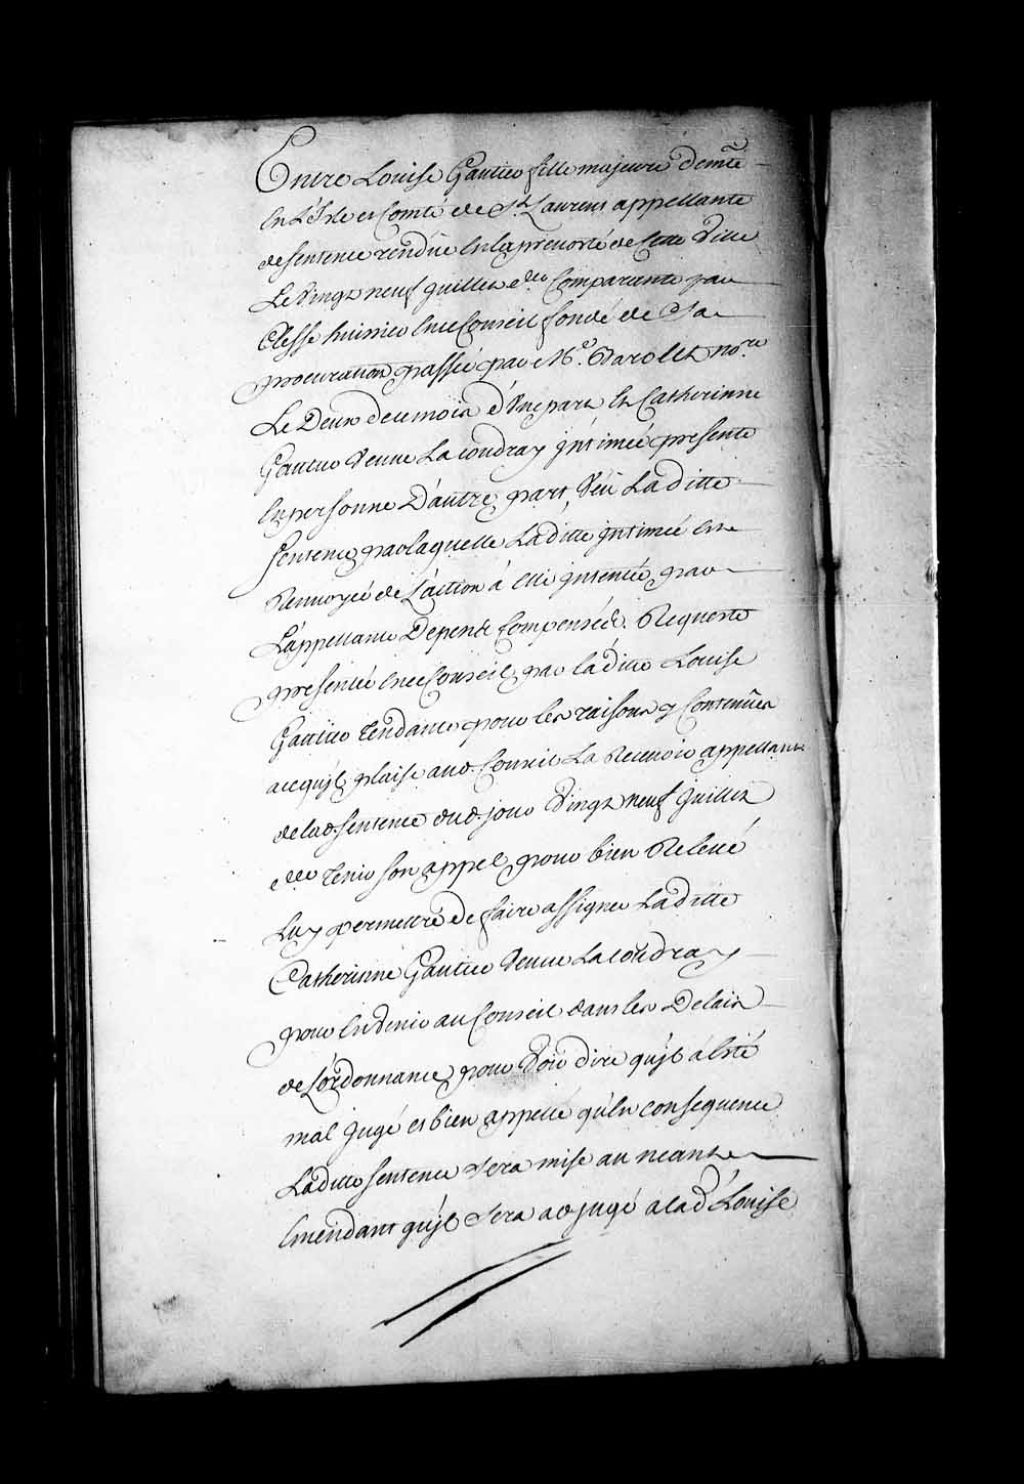 Entre Louise Gautier fille majeure demte
En L'Isle et Comté de St Laurens appellante
de sentence rendüe En la prevosté de Cette Ville
Le Vingt neuf Juillet der Comparante par
Clesse huissier En ce Conseil fondé de Sa
procuration passée par Me Barolet nore
Le Deux de ce mois d'Une part Et Catherinne
Gautier Veuve La coudray Jntimée presente
En personne D'autre part, Veü Laditte
Sentence par laquelle Laditte Jntimée Est
Renvoyée de L'action á Elle Jntentée par
L'appellante Depens Compensés. Requeste
presentée En ce Conseil par laditte Louise
Gautier Tendante pour les raisons y Contenües
ace qu'jl plaise aud. Conseil La Recevoir appellante
de lad. sentence dud. jour Vingt neuf Juillet
der Tenir son appel pour bien Relevé
Luy permettre de faire assigner Laditte
Catherinne Gautier Veuve La coudray
pour En Venir au Conseil dans les Delais
de L'ordonnance pour Voir dire qu'jl á Esté
mal Jugé et bien appellé qu'En consequence
Laditte sentence sera mise au neant
Emendant qu'jl sera adjugé a lad. Louise